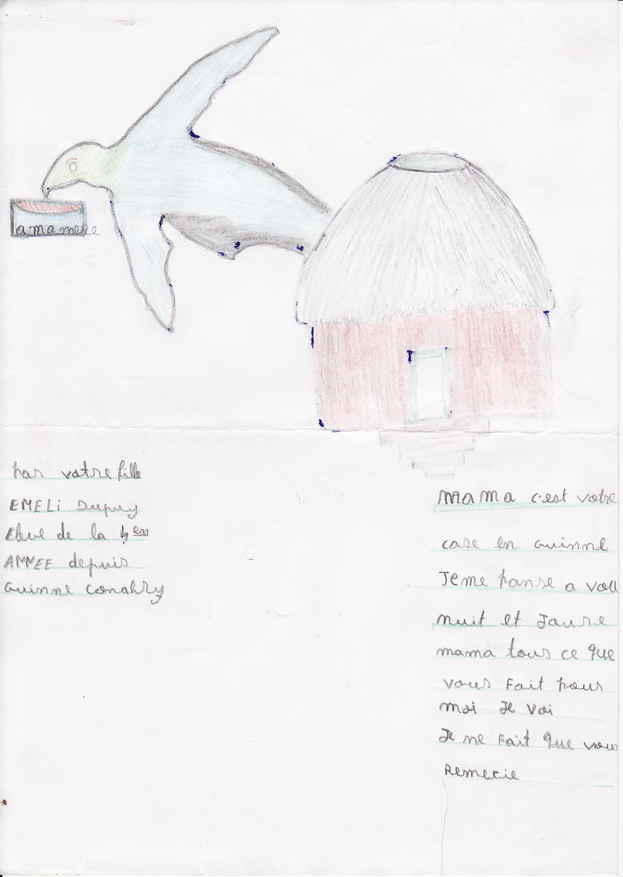 a ma mere
par votre fille
EMELi Dupuy
Eleve de la 4 em
ANNEE depuis
Guinne Conakry
MAMA c'est votre
case en Guinne
Je me panse a vou
nuit et Joure
mama tous ce que
vous Fait pour
moi Je voi
Je ne Fait que vous
Remecie